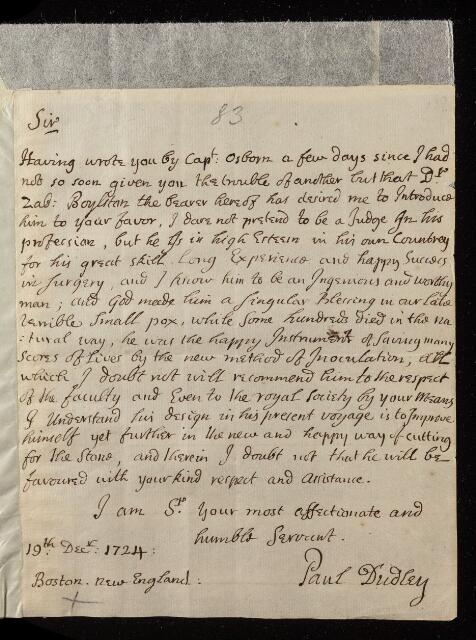 83
Sir
Having wrote you by Capt. Osborn a few days since I had
not so soon given you the trouble of another but that Dr.
Zab: Boylston the bearer hereof has desir'd me to Introduce
him to your favor, I dare not pretend to be a Judge In his
profession, but he Is in high Esteem in his own Countrey
for his great skill, Long Experience and happy Success
in surgery, and I know him to be an Ingenious and worthy
man; and God made him a singular Blessing in our Late
terrible Small pox, while Some hundreds died in the na
=tural way, he was the happy Instrument of Saving many
Scores of Lives by the new method of Inoculation, all
which I doubt not will recommend him to the respect
of the faculty and Even to the royal Society by your Means
I Understand his design in his present voyage is to Improve
himself yet further in the new and happy way of cutting
for the Stone, and therein I doubt not that he will be
favoured with your kind respect and Assistance.
I am Sr. Your most affectionate and
humble Servant.
19th. Decr. 1724:
Paul Dudley
Boston. new England: